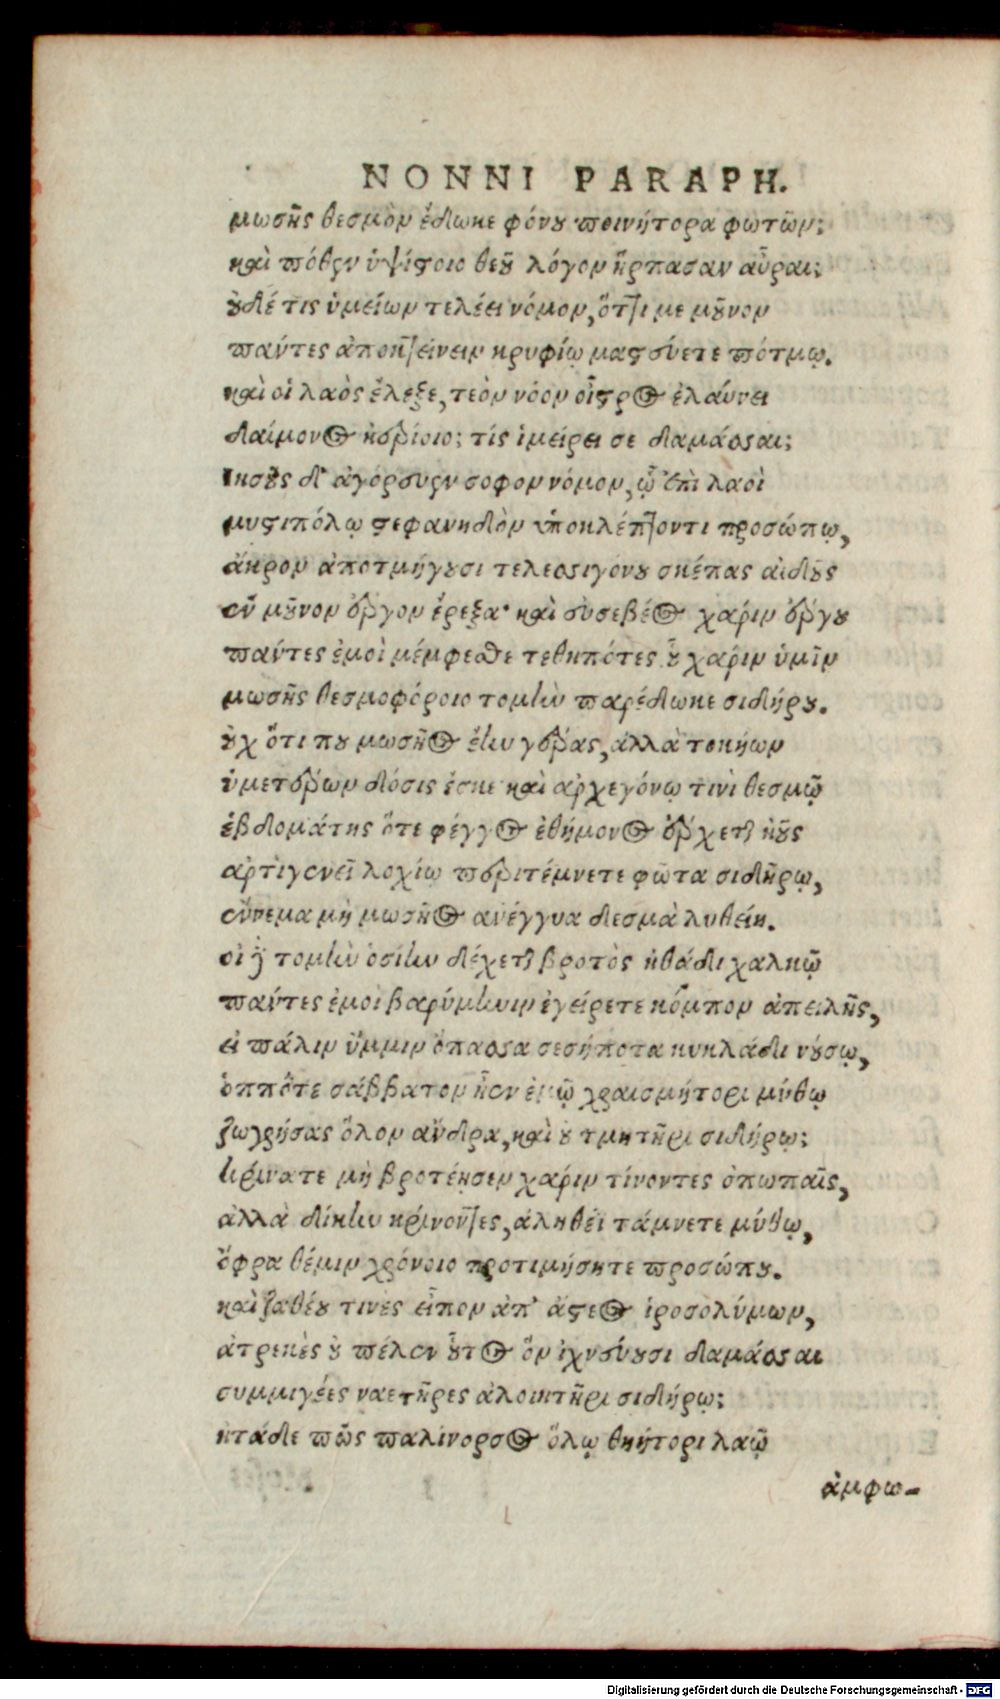 NONNI PARAPH.
μωσῆς θεσμὸν ἔδωκε φόνου ποινήτορα φωτῶν;
καὶ πόθεν ὑψίστοιο θεοῦ λόγον ἥρπασαν αὖραι;
οὐδέ τις ὑμείων τελέει νόμον, ὅττι με μοῦνον
πάντες ἀποκτείνειν κρυφίῳ μαστεύετε πότμῳ.
καὶ οἱ λαὸς ἔλεξε, τεὸν νόον οἶστρος ἐλαύνει
δαίμονος ἠερίοιο; τίς ἱμείρει σε δαμάσσαι;
Ιησοῦς δ' ἀγόρευεν σοφον νόμον, ᾧ ἐπὶ λαοὶ
μυστιπόλῳ στεφανηδὸν ὑποκλέπτοντι προσώπῳ,
ἄκρον ἀποτμήγουσι τελεσσιγόνου σκέπας αἰδοῦς
ἓν μοῦνον ἔργον ἔρεξα· καὶ εὐσεβέος χάριν ἔργου
πάντες ἐμοὶ μέμφεσθε τεθηπότες. οὗ χάριν ὑμῖν
μωσῆς θεσμοφόροιο τομὴν παρέδωκε σιδήρου.
οὐχ ὅτι που μωσῆος ἔην γέρας, ἀλλὰ τοκήων
ὑμετέρων δόσις ἔσκε καὶ αρχεγόνῳ τινὶ θεσμῷ
ἑβδομάτης ὅτε φέγγος ἐθήμονος ἔρχεται ἠοῦς
αρτιγενεῖ λοχίῳ περιτέμνετε φῶτα σιδήρῳ,
οὕνεμα μὴ μωσῆος ανέγγυα δεσμὰ λυθείη.
οἱ δὲ τομὴν ὁσίην δέχεται βροτὸς ἠθάδι χαλκῷ
πάντες ἐμοι βαρύμηνιν ἐγείρετε κόμπον ἀπειλῆς,
εἰ πάλιν ὔμμιν ὄπασσα σεσήποτα κυκλάδι νούσῳ,
ὁππότε σάββατον ἦεν ἐμῷ χραισμήτορι μύθῳ
ζωγρήσας ὅλον ἄνδρα, καὶ οὐ τμητῆρι σιδήρῳ;
κρίνατε μὴ βροτέῃσεν χάριν τίνοντες ὀπωπαῖς,
ἀλλὰ δίκην κρίνοντες, ἀληθέϊ τάμνετε μύθῳ,
ὄφρα θέμιν χρόνοιο προτιμήσητε προσώπου.
καὶ ζαθέου τινες εἶπον ἀπ' ἄστεος ἱροσολύμων,
ἀτρεκὲς οὐ πέλεν οὗτος ὃν ἰχνεύουσι δαμάσσαι
συμμιγέες ναετῆρες ἀλοιητῆρι σιδήρῳ;
ἠτάδε πῶς παλίνορσος ὅλῳ θηήτορι λαῷ
ἀμφω-
Digitalisierung gefördert durch die Deutsche Forschungsgemeinschaft - DFG